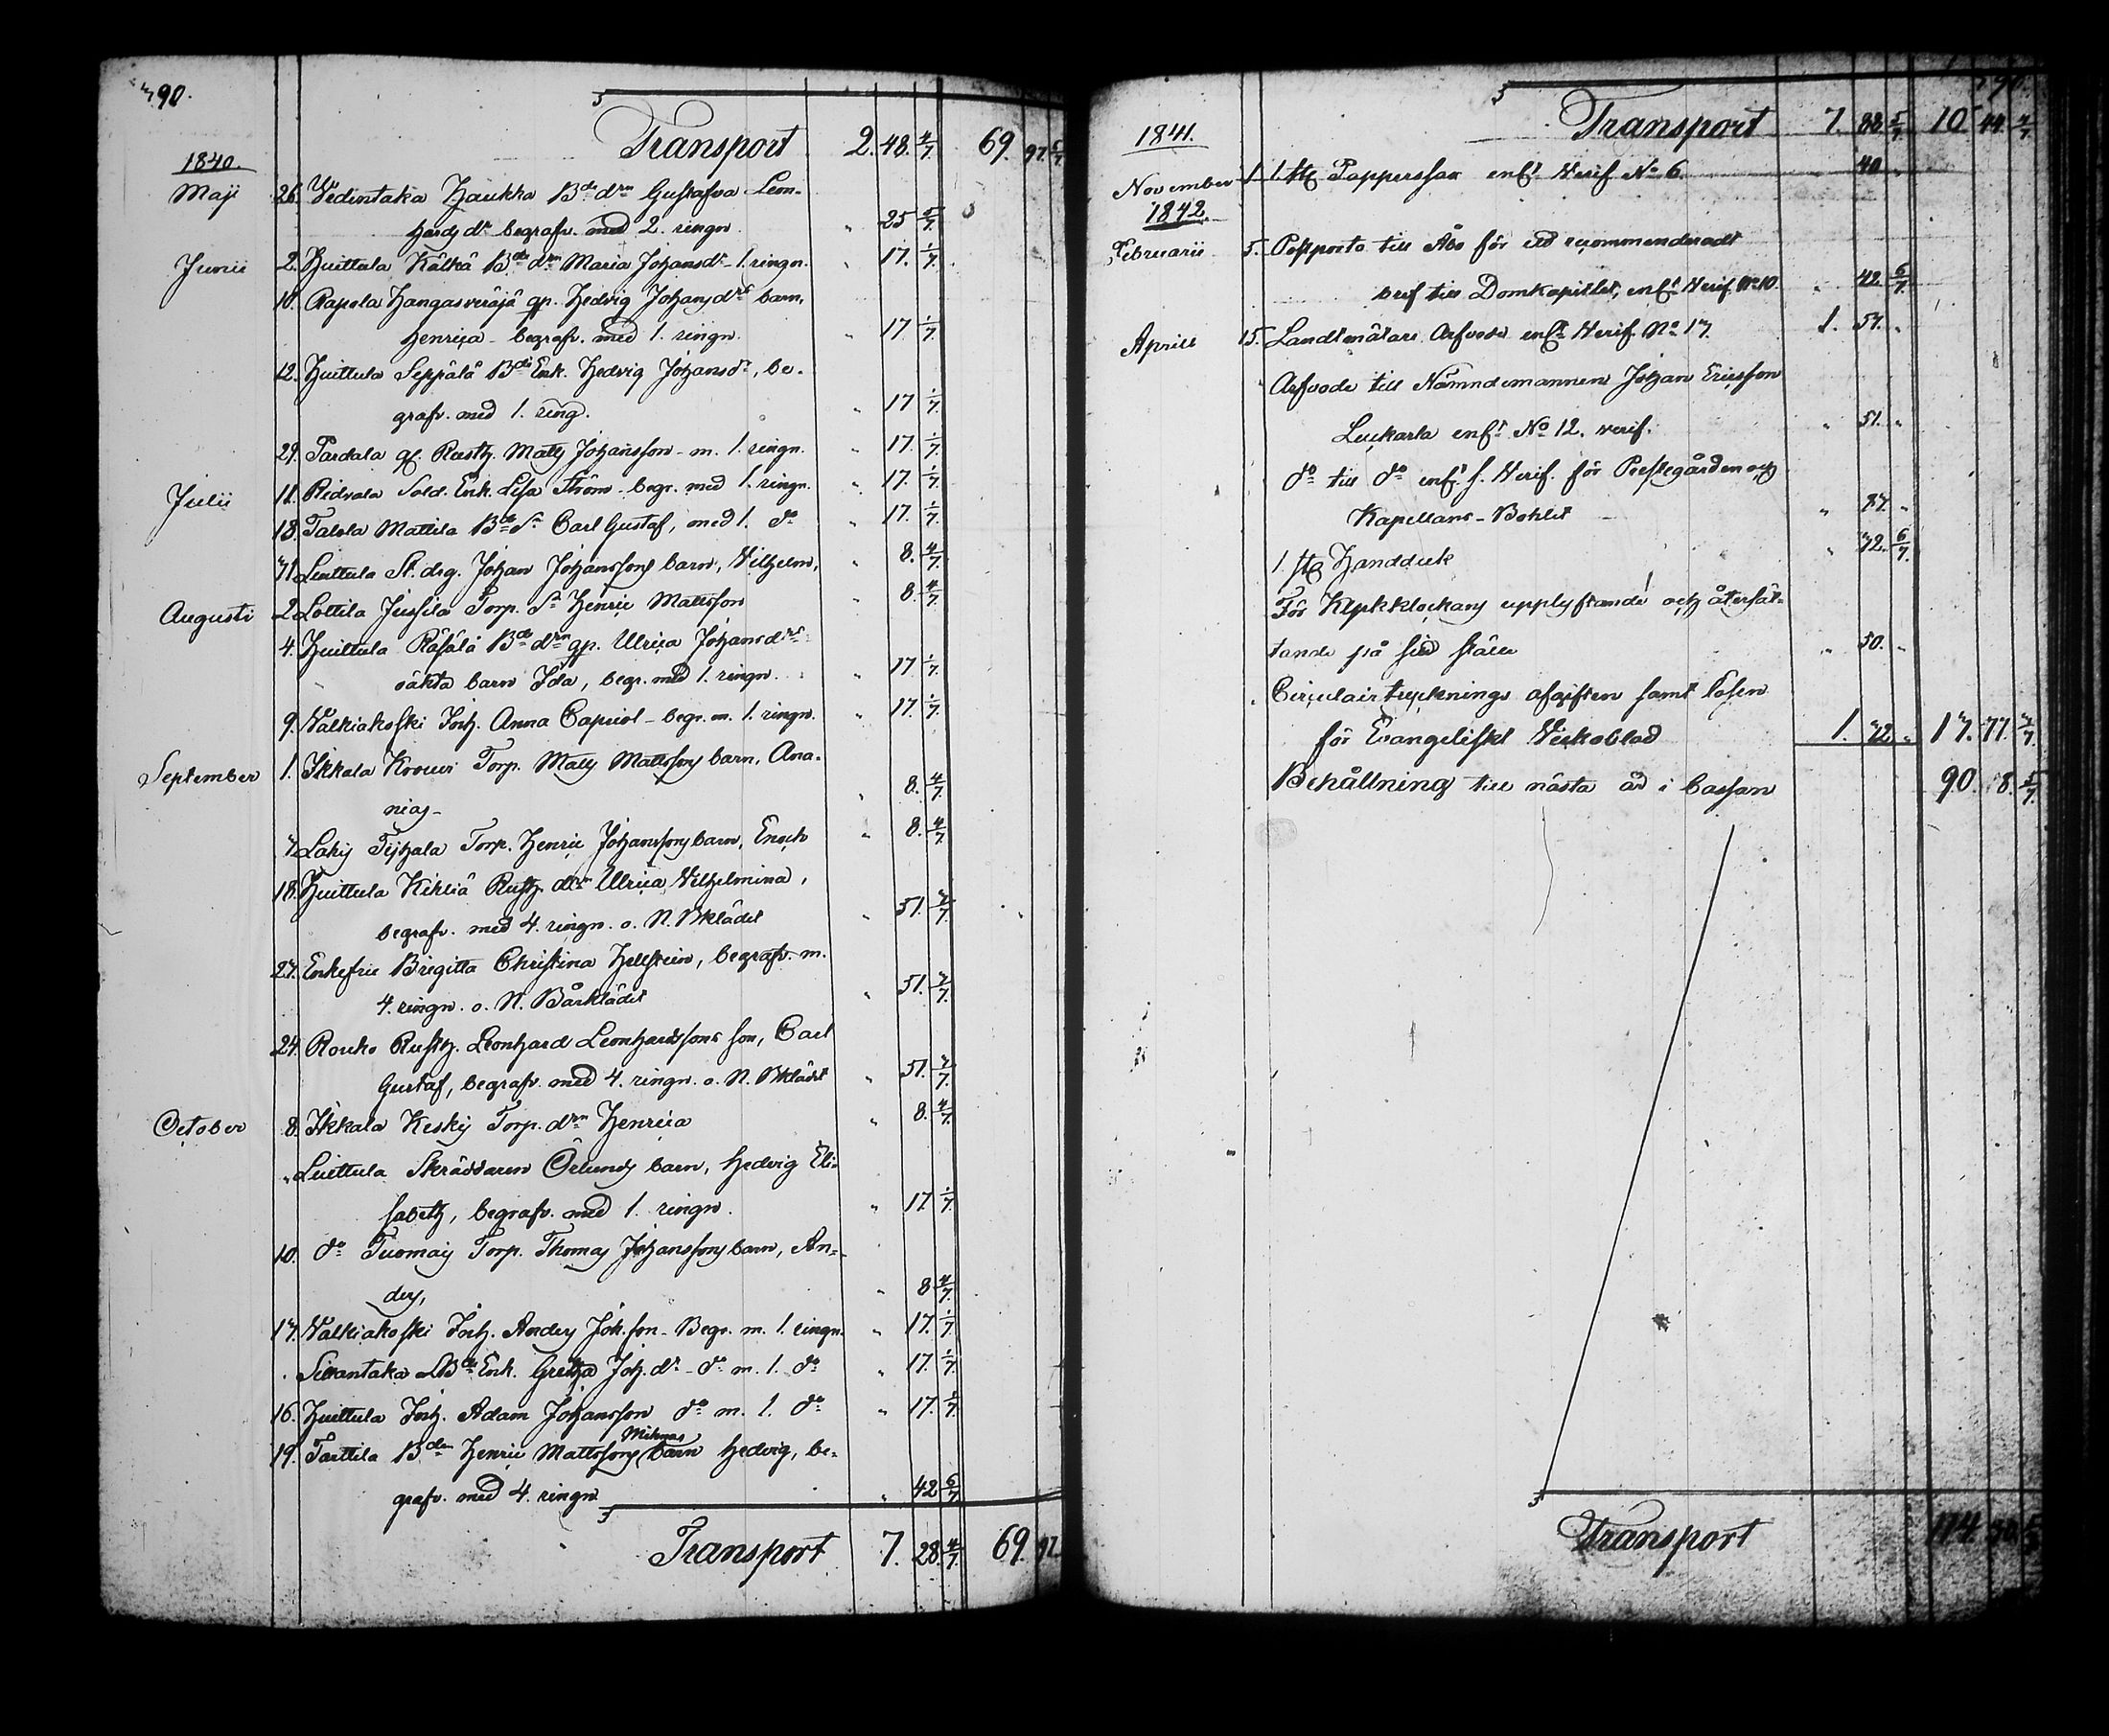 90.
Transport 2. 48. 4/7 69. 97. 5/7
1840.
Maji 26. Wedentaka Haukka B:de d:rn Gustafva Leon-
hards d:r begrafv. med 2. ringn. " 25 5/7
Junii 2. Huittula Kälkä B:de d:rn Maria Johansd:r - 1. ringn. " 17. 1/7
10. Rapola Hangasveräjä qp. Hedvig Johansd:rs barn,
Henrica - begrafv. med 1. ringn. " 17 1/7
12. Huittula Seppälä B:de Enk. Hedvig Johansd:r, be-
grafv. med 1. ring. " 17 1/7
29. Pardala gl. Rusth. Matts Johansson - m. 1. ringn. " 17. 1/7
Julii 11. Ridvala Sold. Enk. Lisa Ström - begr. med 1. ringn. " 17. 1/7
18. Talola Mattila B:de S:n Carl Gustaf, med 1. d:o " 17. 1/7
21. Luittula St. drg. Johan Johanssons barn, Vilhelm, " 8. 4/7
Augusti 2. Lottila Jussila Torp. S:n Henric Mattsson " 8. 4/7
4. Huittula Räfälä B:de d:rn qp. Ulrica Johansd:rs
oäkta barn Ida, begr. med 1. ringn. " 17 1/7
9. Walkiakoski Inh. Anna Capriol - begr. m. 1. ringn. " 17. 1/7
September 1. Ikkala Krouvi Torp. Matts Mattssons barn, Ana-
nias - " 8. 4/7
7. Lahis Tyhala Torp. Henric Johanssons barn, Enoch " 8. 4/7
18. Huittula Kihliä Rusth. d:rn Ulrica Vilhelmina,
begrafv. med 4. ringn. o. N. Bklädet " 51. 3/7
27. Enkefru Bregitta Christina Hellstein, begrafv. m.
4. ringn. o. N. Bårklädet " 51. 3/7
24. Rouko Rusth. Leonhard Leonhardssons son, Carl
Gustaf, begrafv. med 4. ringn. o. N. Bklädet " 51. 3/7
October 8. Ikkala Keskis Torp. d:rn Henrica " 8. 4/7
" Luittula Skräddaren Örlunds barn, Hedvig Eli-
sabeth, begrafv. med 1. ringn. " 17. 1/7
10. d:o Tuomais Torp. Thomas Johanssons barn, An-
ders, " 8 4/7
17. Walkiakoski Inh. Anders Joh.son - Begr. m. 1. ringn. " 17. 1/7
" Sewantaka B:de Enk. Gretha Joh. d:r - d:o m. 1. d:o " 17. 1/7
16. Huittula Inh. Adam Johansson d:o m. 1. d:o " 17. 1/7
19. Tarttila B:den Henric Mattssons barn Hedvig, be-
grafv. med 4. ringn " 42 6/7
Transport 7. 28. 4/7 69. 97.
Transport 7. 88 5/7 10 44. 4/7
1841.
November 1. 1. st. Papperssax enl:t Verif. N:o 6. 40 "
1842.
Februarii 5. Postporto till Åbo för ett recommenderadt
bref till Domkapitlet, enl:t Verif. N:o 10. " 42 6/7
Aprill 15. Landtmätare Arfvode enl:t Verif. N:o 17. 1. 51. "
Arfvode till Nämndemannen Johan Ericsson
Luckarla enl:t N:o 12. verif. " 51. "
d:o till d:o enl:t s. Verif. för Prestgården och
Kapellans-Bohlet " 87. "
1 st. Handduk " 72. 6/7
För Kyrkklockans upplyftande och återsät-
tande på sitt ställe " 50. "
" Circulair trycknings afgiften samt lösen
för Evangeliskt Veckoblad 1. 72. " 17. 77. 3/7
Behållning till nästa år i Cassan 90. 8. 5/7
Transport